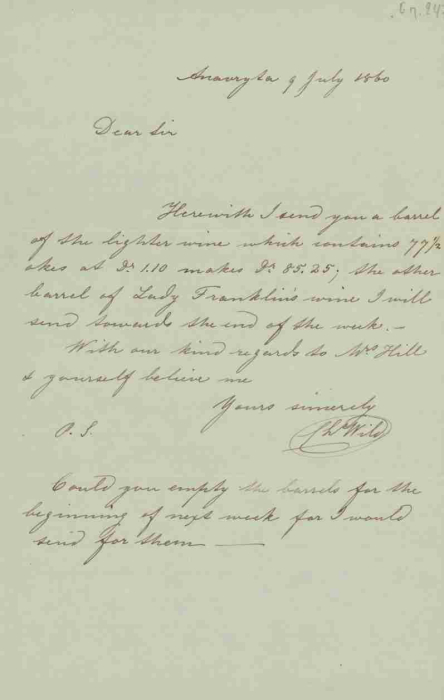 Anavryta 9 July 1860
Dear Sir
Herewith I send you a barrel
of the lighter wine which contains 77 1/2
okes at Dr 1.10 makes Dr 85.25; the other
barrel of Lady Franklin's wine I will
send towards the end of the week. –
With our kind regards to Mrs Hill
& yourself believe me
Yours sincerely
P.S.
Ch. Wild
Could you empty the barrels for the
beginning of next week for I would
send for them —